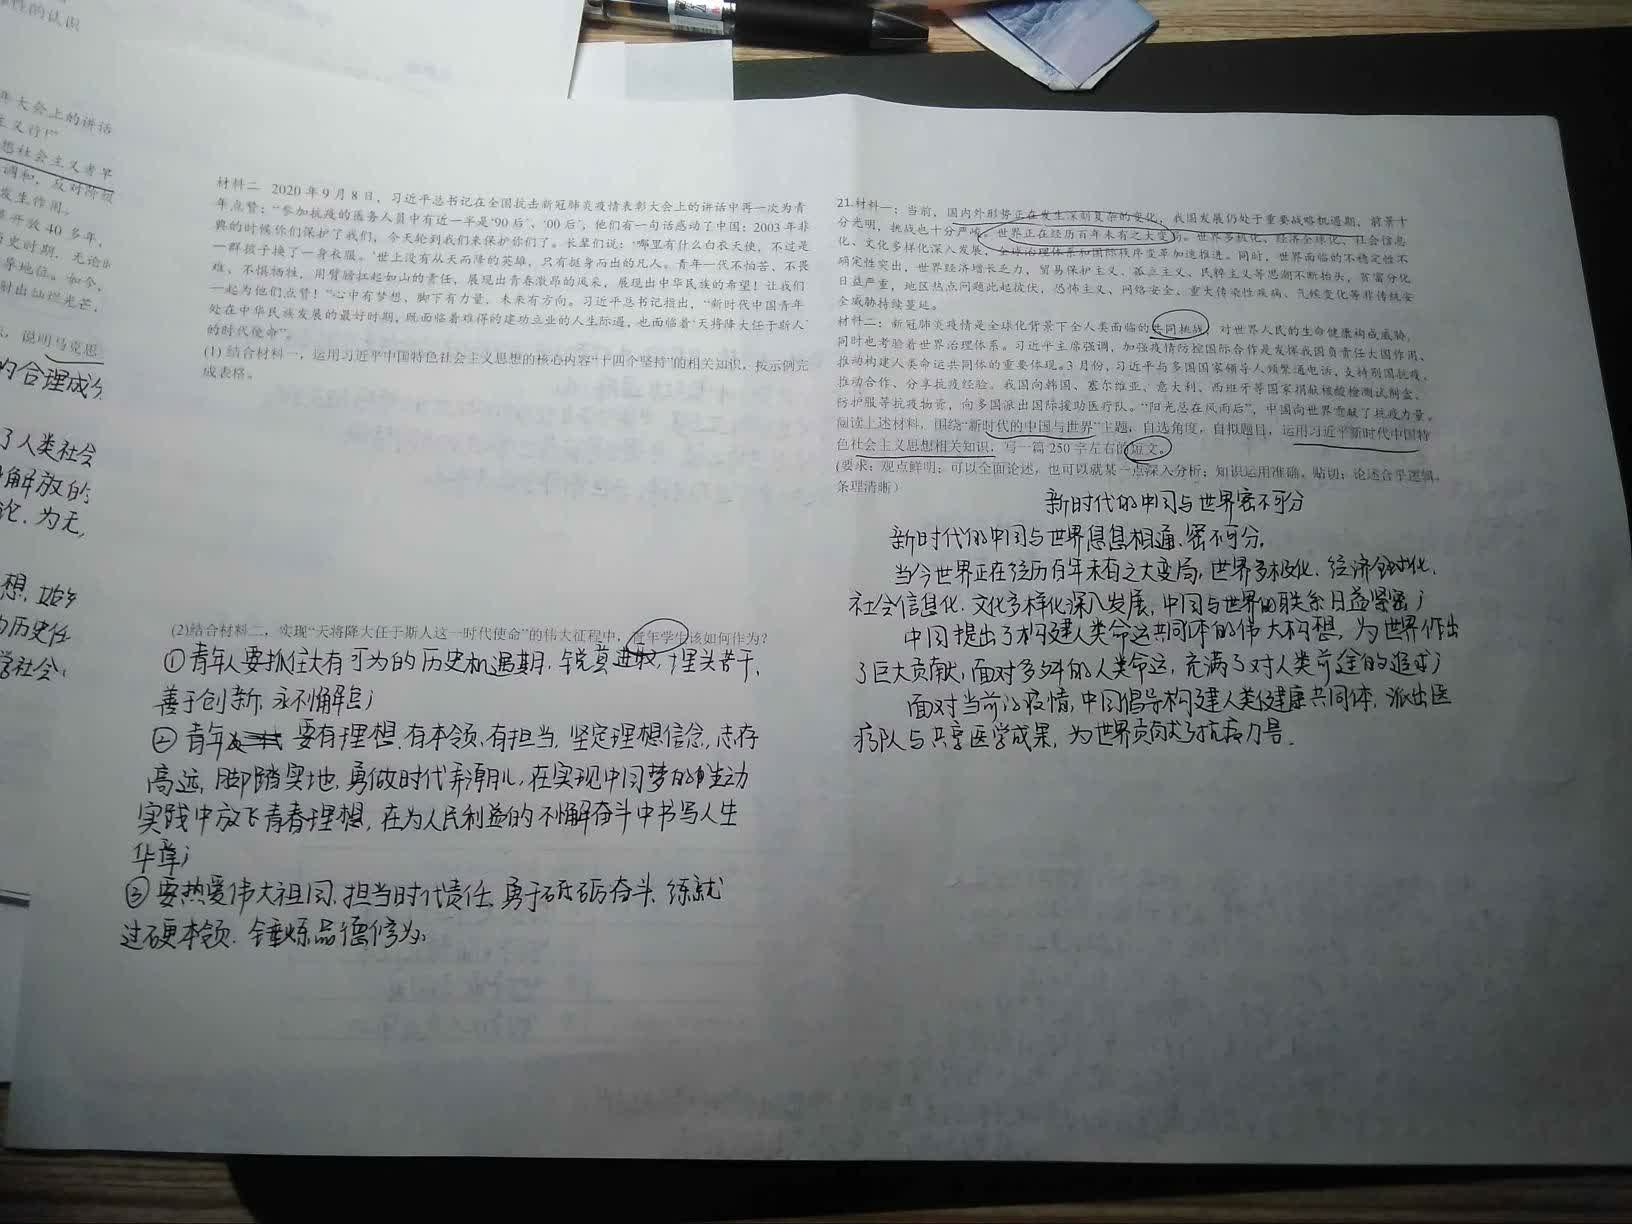 性的认识
大会上的讲话
主义行!"
想社会主义者早
调和，反对阶级
发生作用。
革开放 40 多年，
历史时期，无论
导地位。如今，
射出灿烂光芒，
，说明马克思
的合理成分
了人类社会
解放的
论，为无，
想，始终
的历史任
学社会
材料二 2020 年 9 月 8 日，习近平总书记在全国抗击新冠肺炎疫情表彰大会上的讲话中再一次为青
年点赞："参加抗疫的医务人员中有近一半是'90 后'、'00 后'，他们有一句话感动了中国：2003 年非
典的时候你们保护了我们，今天轮到我们来保护你们了。长辈们说：'哪里有什么白衣天使，不过是
一群孩子换了一身衣服。'世上没有从天而降的英雄，只有挺身而出的凡人。青年一代不怕苦、不畏
难、不惧牺牲，用臂膀扛起如山的责任，展现出青春激昂的风采，展现出中华民族的希望！让我们
一起为他们点赞！"心中有梦想，脚下有力量，未来有方向。习近平总书记指出，"新时代中国青年
处在中华民族发展的最好时期，既面临着难得的建功立业的人生际遇，也面临着'天将降大任于斯人'
的时代使命"。
(1) 结合材料一，运用习近平中国特色社会主义思想的核心内容"十四个坚持"的相关知识，按示例完
成表格。
(2)结合材料二，实现"天将降大任于斯人这一时代使命"的伟大征程中，青年学生该如何作为？
①青年人要抓住大有可为的历史机遇期，锐意进取，埋头苦干，
善于创新，永不懈怠；
②青年 要有理想、有本领、有担当，坚定理想信念，志存
高远，脚踏实地，勇做时代弄潮儿，在实现中国梦的生动
实践中放飞青春理想，在为人民利益的不懈奋斗中书写人生
华章；
③要热爱伟大祖国，担当时代责任，勇于砥砺奋斗，练就
过硬本领，锤炼品德修为。
21.材料一：当前，国内外形势正在发生深刻复杂的变化，我国发展仍处于重要战略机遇期，前景十
分光明，挑战也十分严峻。世界正在经历百年未有之大变局。世界多极化、经济全球化、社会信息
化、文化多样化深入发展，全球治理体系和国际秩序变革加速推进。同时，世界面临的不稳定性不
确定性突出，世界经济增长乏力，贸易保护主义、孤立主义、民粹主义等思潮不断抬头，贫富分化
日益严重，地区热点问题此起彼伏，恐怖主义、网络安全、重大传染性疾病、气候变化等非传统安
全威胁持续蔓延。
材料二：新冠肺炎疫情是全球化背景下全人类面临的共同挑战，对世界人民的生命健康构成威胁，
同时也考验着世界治理体系。习近平主席强调，加强疫情防控国际合作是发挥我国负责任大国作用、
推动构建人类命运共同体的重要体现。3 月份，习近平与多国国家领导人频繁通电话，支持别国抗疫，
推动合作、分享抗疫经验。我国向韩国、塞尔维亚、意大利、西班牙等国家捐献核酸检测试剂盒、
防护服等抗疫物资，向多国派出国际援助医疗队。"阳光总在风雨后"，中国向世界贡献了抗疫力量。
阅读上述材料，围绕"新时代的中国与世界"主题，自选角度，自拟题目，运用习近平新时代中国特
色社会主义思想相关知识，写一篇 250 字左右的短文。
(要求：观点鲜明；可以全面论述，也可以就某一点深入分析；知识运用准确、贴切；论述合乎逻辑，
条理清晰）
新时代的中国与世界密不可分
新时代的中国与世界息息相通、密不可分。
当今世界正在经历百年未有之大变局，世界多极化、经济全球化、
社会信息化、文化多样化深入发展，中国与世界的联系日益紧密；
中国提出了构建人类命运共同体的伟大构想，为世界作出
了巨大贡献，面对多舛的人类命运，充满了对人类前途的追求；
面对当前的疫情，中国倡导构建人类健康共同体，派出医
疗队与共享医学成果，为世界贡献了抗疫力量。